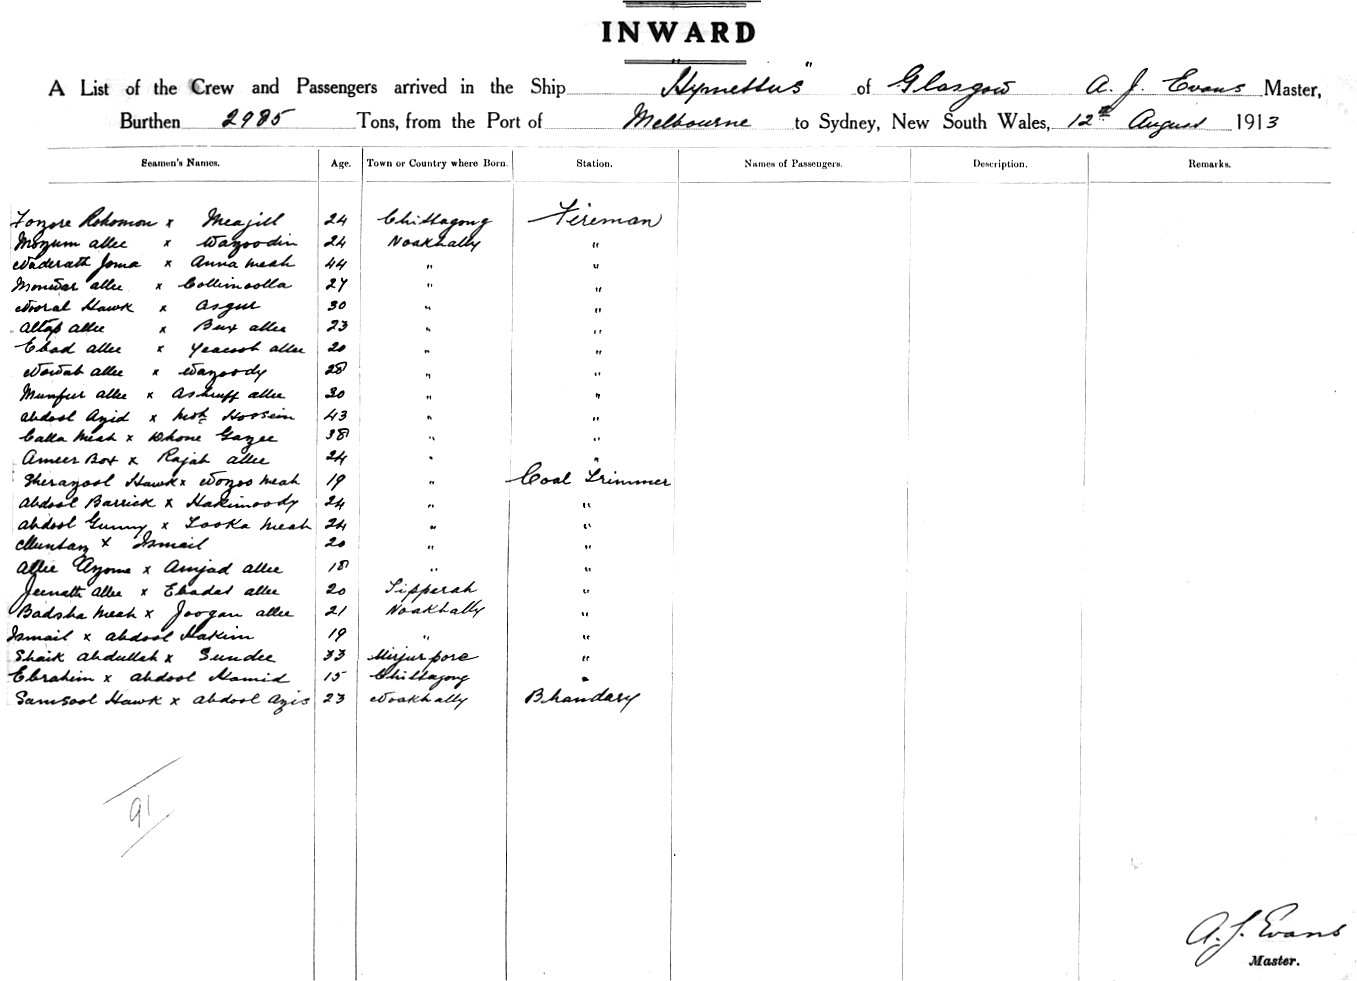 INWARD
A List of the Crew and Passengers arrived in the Ship "Hymettus" of Glasgow A. J. Evans Master,
Burthen 2985 Tons, from the Port of Melbourne to Sydney, New South Wales, 12th August 1913
Seamen's Names. Age. Town or Country where Born. Station. Names of Passengers. Description. Remarks.
Fozore Rohomon x Meajill 24 Chittagong Fireman
Mozum allee x Wazoodin 24 Noakhally "
Naderath Joma x Anna Meah 44 " "
Monwar allee x Collimoolla 27 " "
Nooral Hawk x Asgur 30 " "
Altap allee x Bux allee 23 " "
Ebad allee x Yeacoob allee 20 " "
Nowab allee x Wazoody 28 " "
Munfur allee x Ashruff allee 30 " "
Abdool Azid x Moh Hoosein 43 " "
Calla Meah x Dhone Gazee 38 " "
Ameer Box x Rajah allee 24 " "
Sherazool Hawk x Wozoo Meah 19 " Coal Trimmer
Abdool Barrick x Hakimoody 24 " "
Abdool Gunny x Looka Meah 24 " "
Muntaz x Ismail 20 " "
Allee Azome x Amjad allee 18 " "
Jeenath Allee x Ebadat allee 20 Tipperah "
Badsha Meah x Joogan allee 21 Noakhally "
Ismail x Abdool Hakim 19 " "
Shaik Abdullah x Gundee 33 Mirjurpore "
Ebrahim x Abdool Hamid 15 Chittagong "
Samsool Hawk x Abdool Azis 23 Noakhally Bhandary
91
A. J. Evans
Master.